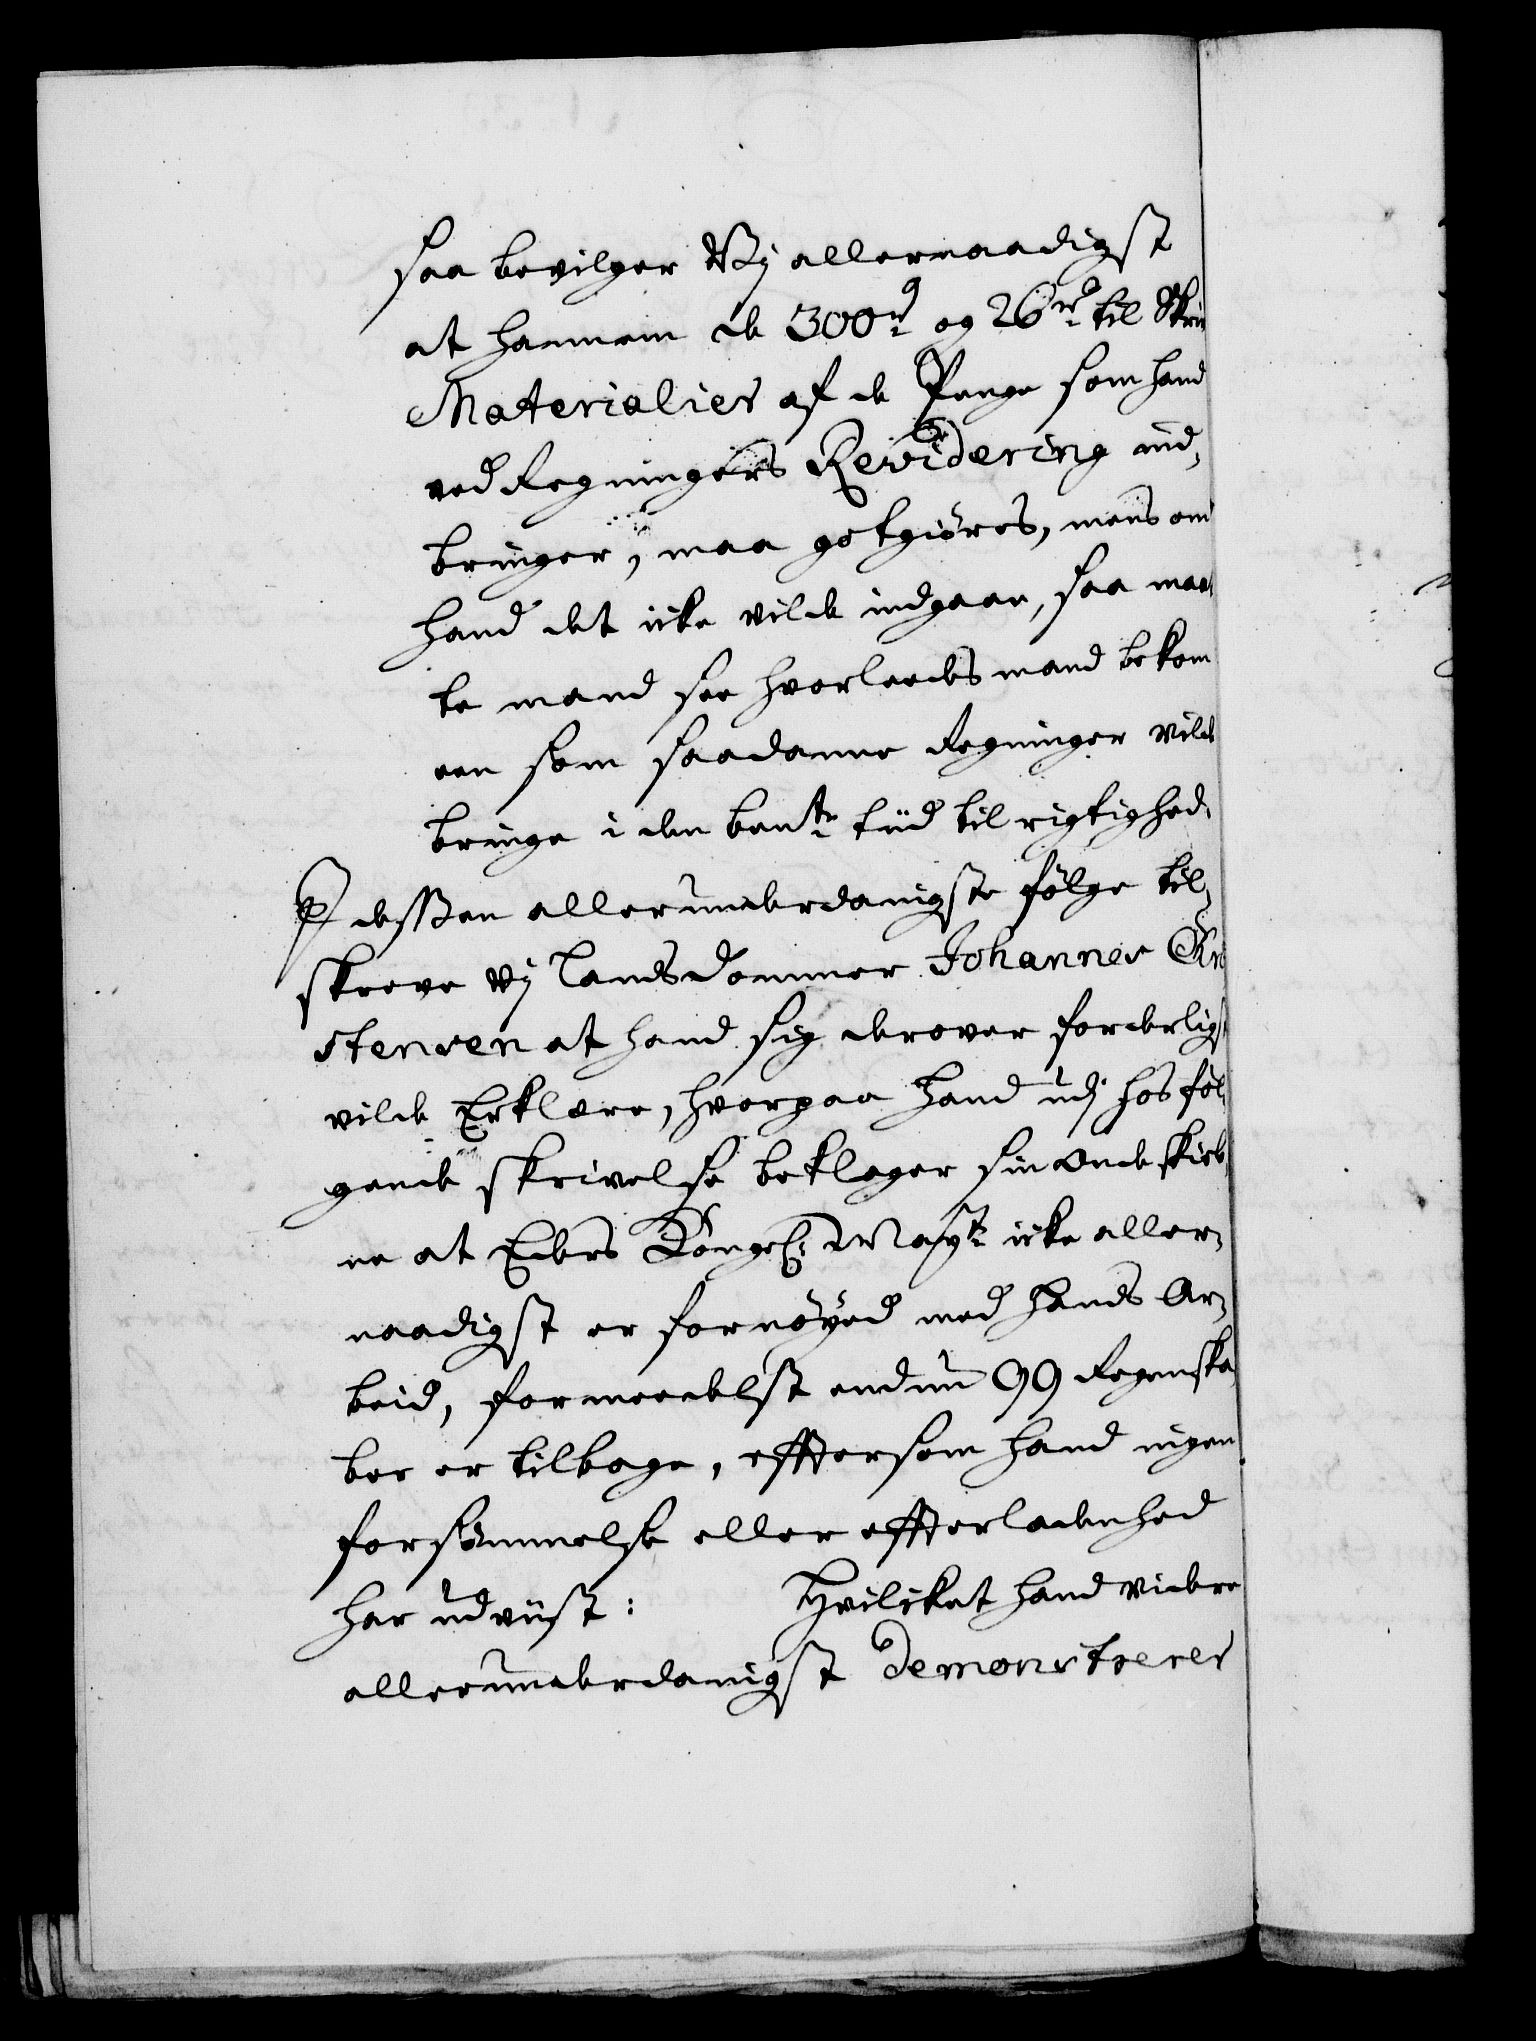 saa bevilger Vj allernaadigst
at hannem de 300 rd og 26 rd til Skriv
Materialier af de Penge som hand
ved Regningers Revidering ind,
bringer, maa gotgiöres, mens om
hand det icke vilde indgaae, saa maa
te mand see hvorleedes mand bekom
een som saadanne Regninger vilde
bringe i den bente tiid til rigtighed.
dessen allerunderdanigste fölge til,
skreve Vj Landsdommer Johannes Chri
stensen at hand sig derover forderligst
vilde Erklere, hvorpaa hand udj hosföl
gende skrivelse beklager sin onde skieb
ne at Eders Kongel: Mayt icke aller,
naadigst er fornöyed med hands Ar,
beid, formeedelst endnu 99 Regenska
ber er tilbage, efftersom hand ingen
forsömmelse eller effterladenhed
har udviist: Hvilcket hand videre
allerunderdanigst demonstrerer